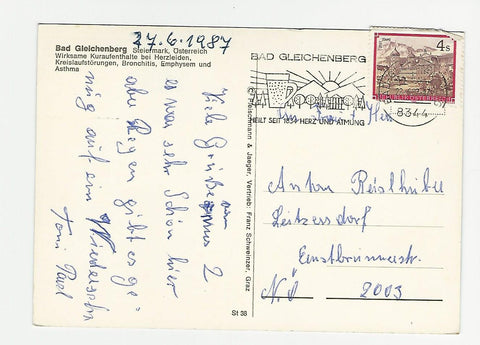 27.6.1987
Bad Gleichenberg Steiermark, Österreich
Wirksame Kuraufenthalte bei Herzleiden,
Kreislaufstörungen, Bronchitis, Emphysem und
Asthma
Viele Grüße von uns 2
es war sehr Schön hier
aber Regen gibt es ge-
nug auf ein Wiedersehn
Toni
© Fleischmann & Jaeger, Vertrieb: Franz Schweitzer, Graz
St 38
BAD GLEICHENBERG
HEILT SEIT 1834 HERZ UND ATMUNG
4 S
REPUBLIK ÖSTERREICH
8344
Anton
Leitzersdorf
Ernstbrunnerstr.
N.Ö 2003